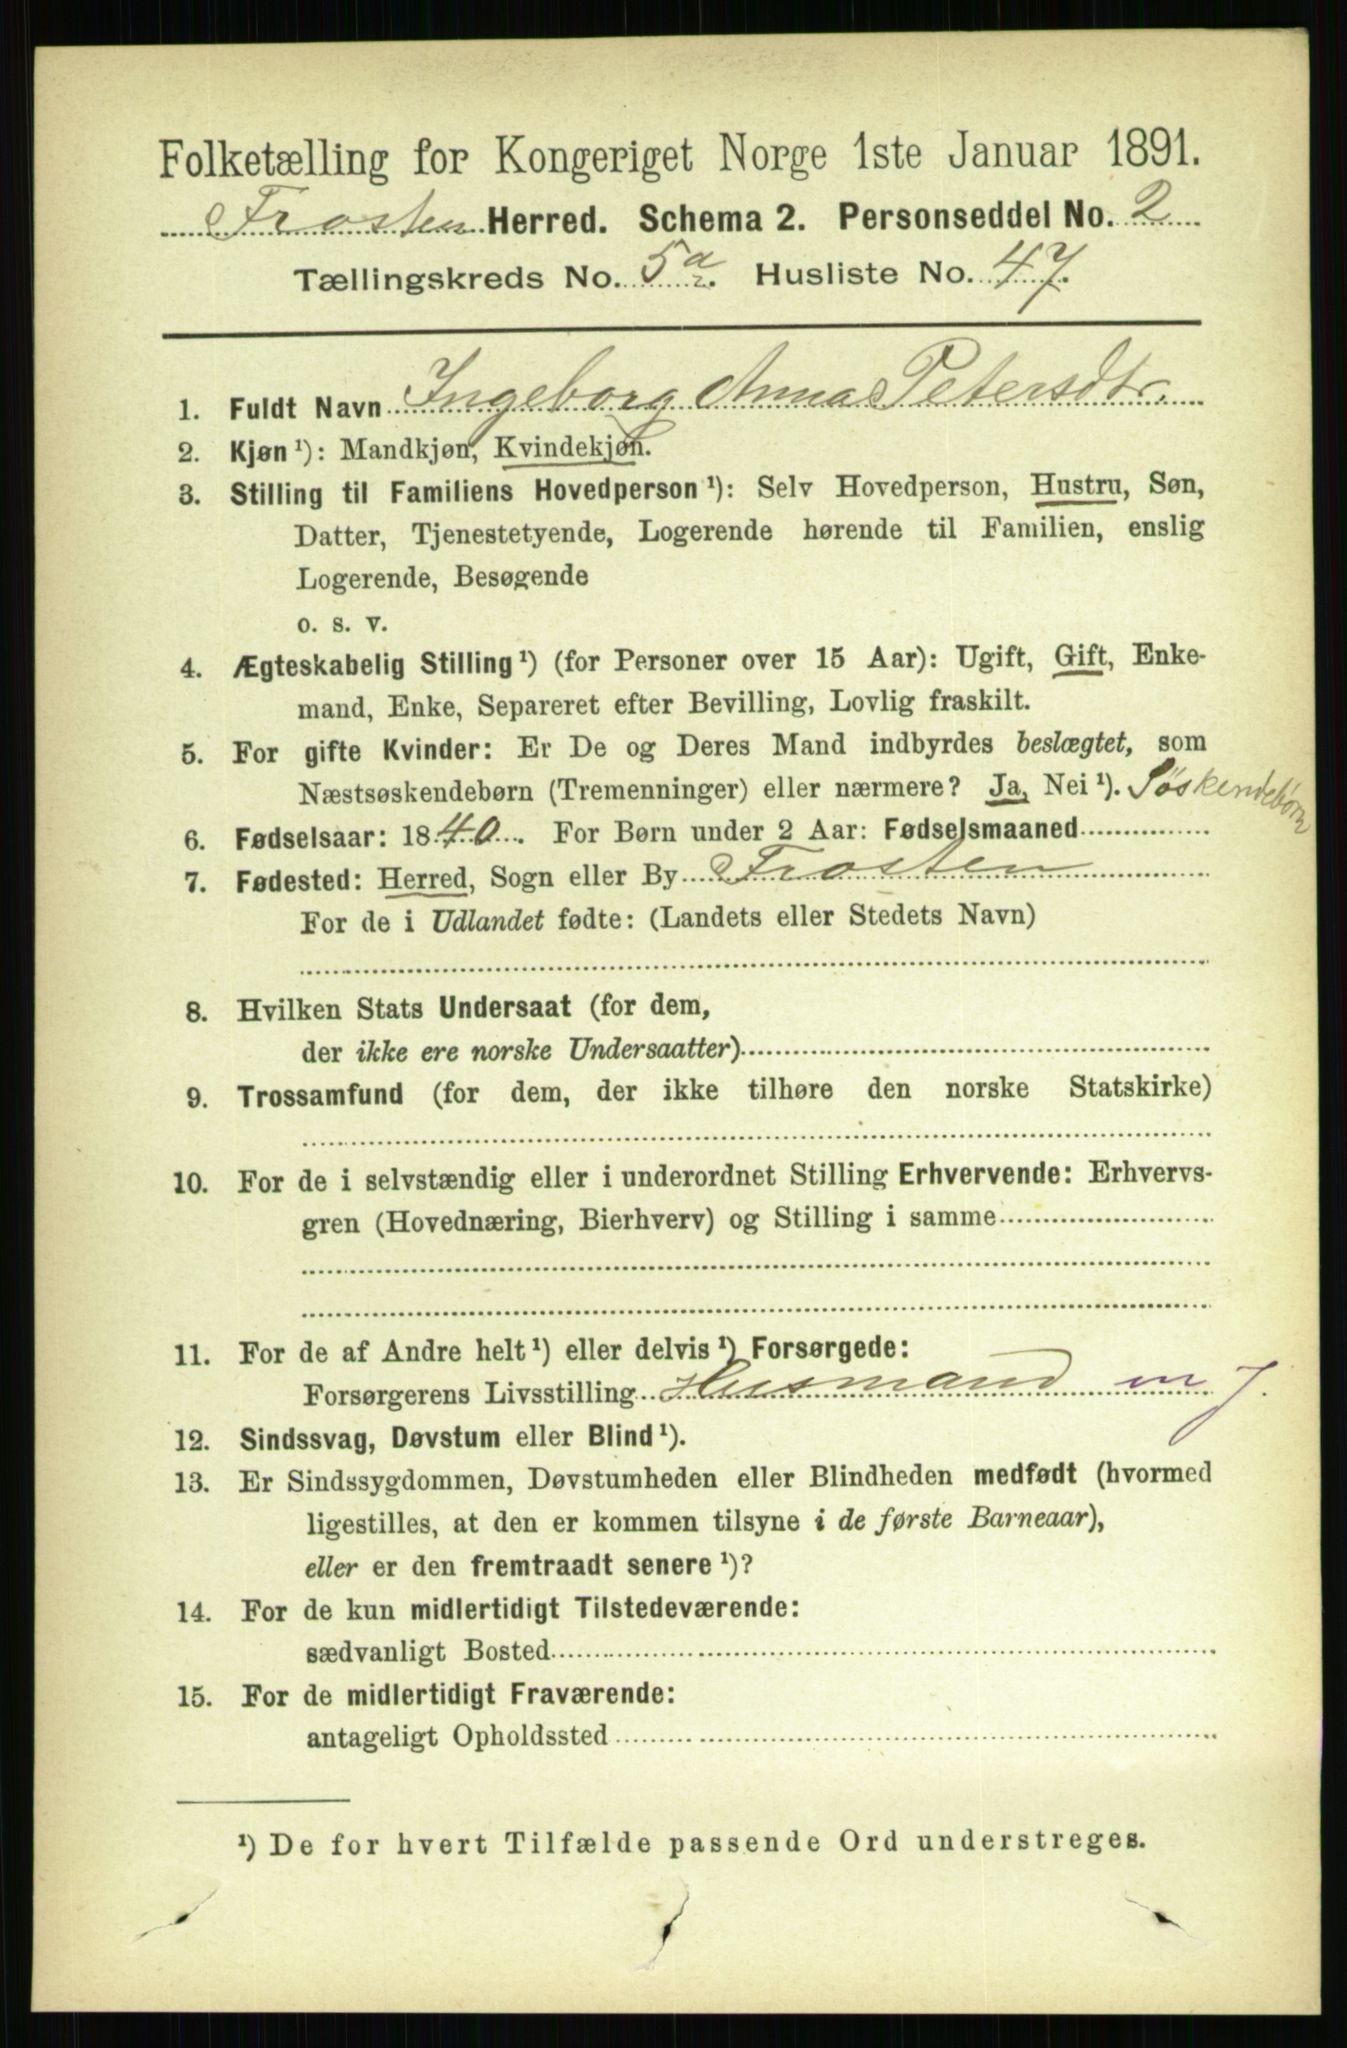 Folketælling for Kongeriget Norge 1ste Januar 1891.
Frosten Herred. Schema 2. Personseddel No. 2
Tællingskreds No. 5a. Husliste No. 47.
1. Fuldt Navn Ingeborg Anna Petersdtr.
2. Kjøn¹): Mandkjøn, Kvindekjøn.
3. Stilling til Familiens Hovedperson¹): Selv Hovedperson, Hustru, Søn,
Datter, Tjenestetyende, Logerende hørende til Familien, enslig
Logerende, Besøgende
o. s. v.
4. Ægteskabelig Stilling¹) (for Personer over 15 Aar): Ugift, Gift, Enke-
mand, Enke, Separeret efter Bevilling, Lovlig fraskilt.
5. For gifte Kvinder: Er De og Deres Mand indbyrdes beslægtet, som
Næstsøskendebørn (Tremenninger) eller nærmere? Ja, Nei¹). Søskendebørn
6. Fødselsaar: 1840. For Børn under 2 Aar: Fødselsmaaned
7. Fødested: Herred, Sogn eller By Frosten
For de i Udlandet fødte: (Landets eller Stedets Navn)
8. Hvilken Stats Undersaat (for dem,
der ikke ere norske Undersaatter)
9. Trossamfund (for dem, der ikke tilhøre den norske Statskirke)
10. For de i selvstændig eller i underordnet Stilling Erhvervende: Erhvervs-
gren (Hovednæring, Bierhverv) og Stilling i samme
11. For de af Andre helt¹) eller delvis¹) Forsørgede:
Forsørgerens Livsstilling Husmand m J.
12. Sindssvag, Døvstum eller Blind¹).
13. Er Sindssygdommen, Døvstumheden eller Blindheden medfødt (hvormed
ligestilles, at den er kommen tilsyne i de første Barneaar),
eller er den fremtraadt senere¹)?
14. For de kun midlertidigt Tilstedeværende:
sædvanligt Bosted
15. For de midlertidigt Fraværende:
antageligt Opholdssted
¹) De for hvert Tilfælde passende Ord understreges.